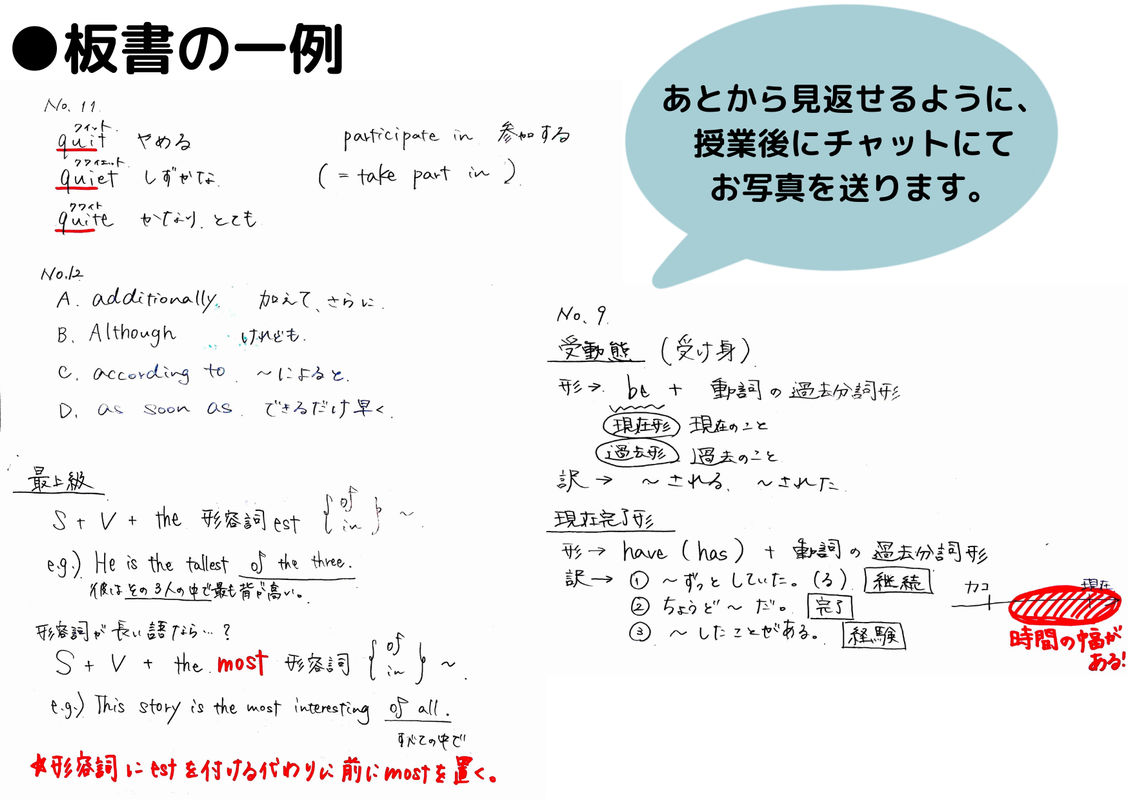 ●板書の一例
あとから見返せるように、
授業後にチャットにて
お写真を送ります。
No. 11.
クイット.
quit やめる
クワイエット.
quiet しずかな.
クワイト
quite かなり、とても
participate in 参加する
( = take part in )
No.12
A. additionally 加えて、さらに.
B. Although けれども.
C. according to ~によると.
D. as soon as できるだけ早く.
最上級
S + V + the 形容詞est { of in } ~.
e.g.) He is the tallest of the three.
彼はその3人の中で最も背が高い。
形容詞が長い語なら…?
S + V + the most 形容詞 { of in } ~.
e.g.) This story is the most interesting of all.
すべての中で
★形容詞にestを付ける代わりに前にmostを置く。
No. 9.
受動態 (受け身)
形→. be + 動詞の過去分詞形
現在形 現在のこと
過去形 過去のこと
訳→ ~される、~された.
現在完了形
形→ have (has) + 動詞の過去分詞形
訳→ ① ~ずっとしていた。(る) 継続
② ちょうど~だ。 完了
③ ~したことがある。 経験
カコ 現在
時間の幅が
ある!